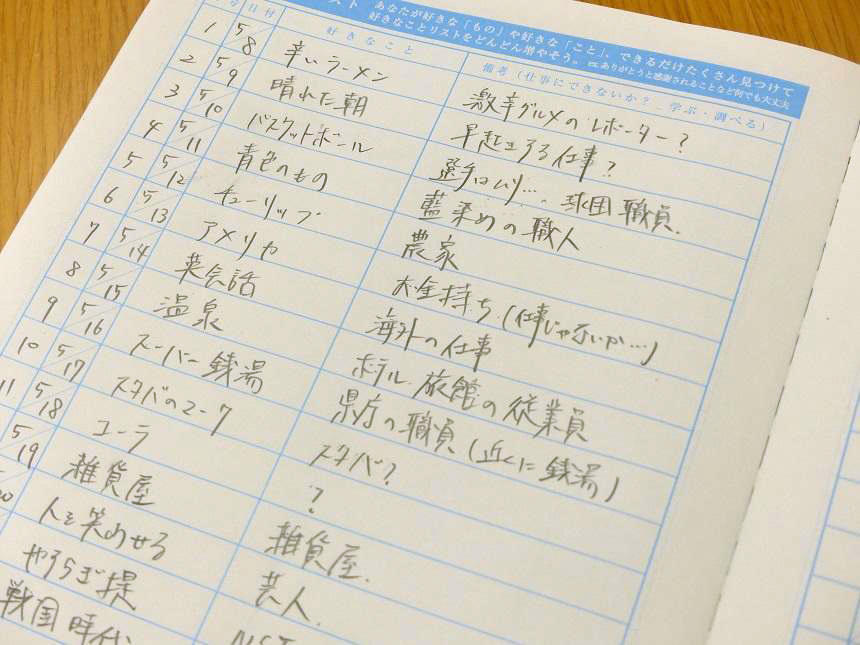 スト あなたが好きな「もの」や好きな「こと」、できるだけたくさん見つけて
好きなことリストをどんどん増やそう。※ありがとうと感謝されることなど何でも大丈夫
号 日付 好きなこと 備考（仕事にできないか？ 学ぶ・調べる）
1 5/8 辛いラーメン 激辛グルメのレポーター？
2 5/9 晴れた朝 早起きする仕事？
3 5/10 バスケットボール 選手はムリ… 球団職員.
4 5/11 青色のもの 藍染めの職人
5 5/12 チューリップ 農家
6 5/13 アメリカ 大金持ち（仕事じゃないか…）
7 5/14 英会話 海外の仕事
8 5/15 温泉 ホテル 旅館の従業員
9 5/16 スーパー銭湯 県庁の職員（近くに銭湯）
10 5/17 スタバのマーク スタバ？
11 5/18 コーラ ？
5/19 雑貨屋 雑貨屋.
20 人を笑わせる 芸人.
やすらぎ堤 NST
戦国時代